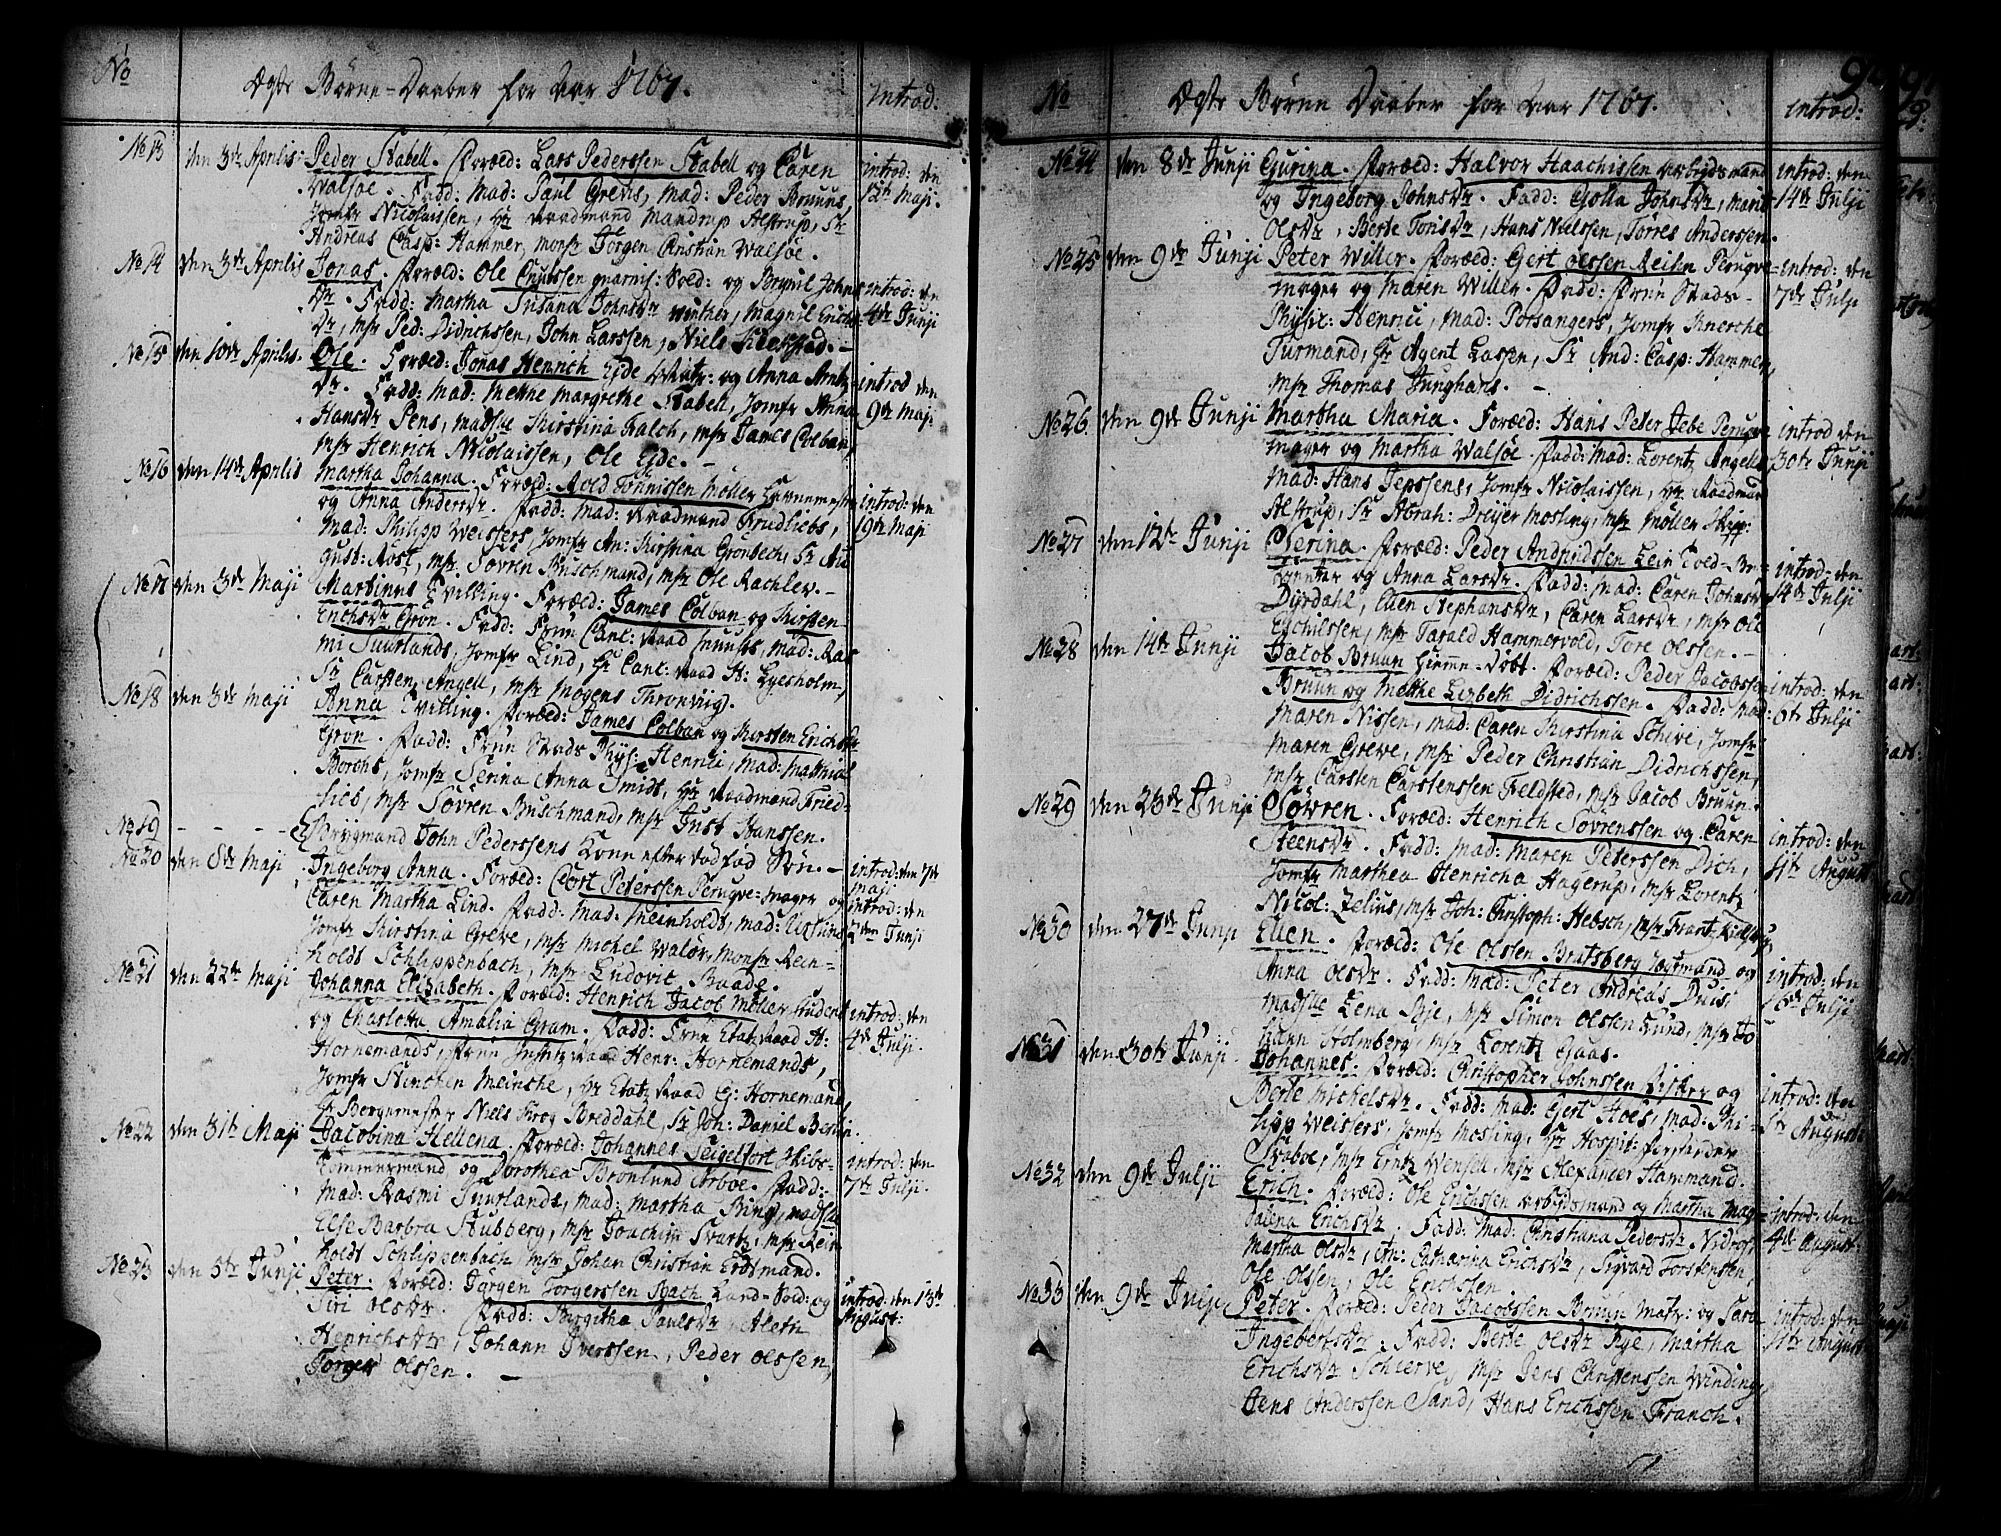 No
Ægte Børne-Daaber for Aar 1767.
Introd:
No 13 den 3die Aprilis Peder Stabell. Foræld: Lars Pederssen Stabell og Caren
Walsøe. Fadd: Mad: Paul Grevis, Mad: Peder Bruuns,
Jomfr Nicolaissen, Hr Raadmand Mandrup Alstrup, Sr
Andreas Casp: Hammer, Monsr Jørgen Christian Walsøe.
introd: den
12te Maji.
No 14 den 3die Aprilis Jonas. Foræld: Ole Cnutssen guarnis: Sold: og Brynil Johns
Dr. Fadd: Martha Susana Johnsdr Winther, Magnil Erichs
Dr, Msr Ped: Didrichssen, John Larssen, Niels
introd: den
4de Junji
No 15 den 10de Aprilis. Ole. Foræld: Jonas Henrich Eide Matr: og Anna Arntz
Dr. Fadd: Mad: Mette Margrethe Stabell, Jomfr Anna
Hansdr Pens, Madslle Kirstina Falch, Msr James Colban,
Msr Henrich Nicolaissen, Ole Eide.
introd den
9de Maji
No 16 den 14de Aprilis Martha Johanna. Foræld: Rold Tønnissen Møller Havnemester
og Anna Andersdr. Fadd: Mad: Raadmand Frudliebs,
Mad: Philipp Weissers, Jomfr An: Kirstina Grønbech, Sr Au
gust: Rost, Msr Søvren Buschmand, Msr Ole Rachlev.
introd: den
19de Maji
No 17 den 3de Maji Martinus Tvilling. Foræld: James Colban og Kirsten
Erichsdr Grøn. Fadd: Frue Canc: Raad Cnuuts, Mad: Ras
mi Suurlands, Jomfr Lind, Hr Canc: Raad H: Lyesholm,
Sr Carsten Angell, Msr Mogens Thronviig.
No 18 den 3de Maji Anna Tvilling. Foræld: James Colban og Kirsten Erichsdr
Grøn. Fadd: Frue Stads Phys: Henrici, Mad: Matthias
Borchs, Jomfr Serina Anna Smids, Hr Raadmand Fried-
lieb, Msr Søvren Buschmand, Msr Just Hanssen.
No 19 - - - - Brygmand John Pederssens Kone efter død fød Søn.
introd: den 7de
Maji
No 20 den 8de Maji Ingeborg Anna. Foræld: Cort Peterssen Peruqve-mager og
Caren Martha Lind. Fadd: Mad: Meinholdts, Mad:
Jomfr Kirstina Greve, Msr Michel Walør, Monsr Rein-
holdt Schlippenbach, Msr Ludovic Baade.
introd: den
2den Junji
No 21 den 22de Maji Johanna Elisabeth. Foræld: Henrich Jacob Møller Student
og Charlotta Amalia Gram. Fadd: Frue Etatz Raad H:
Hornemands, Frue Justitz Raad Henr: Hornemands,
Jomfr Stinchen Meinche, Hr Etatz Raad E: Hornemand,
Hr Borgemester Niels Krog Breddahl, Sr Joh: Daniel Berlin.
introd: den
4de Julji.
No 22 den 31te Maji Jacobina Hellena. Foræld: Johannes Seigelfort Skibs-
tømmermand og Dorothea Brønlund Arboe. Fadd:
Mad: Rasmi Suurlands, Mad: Martha Bing, Madslle
Else Barbra Stubberg, Msr Joachim Svartz, Msr Rein
holdt Schlippenbach, Msr Johan Christian Erdsmand.
introd: den
7de Julji.
No 23 den 5te Junji Peter. Foræld: Jørgen Torgerssen Bach Land-Sold: og
Siri Olsdr. Fadd: Birgitha Paulsdr, Aleth
Henrichsdr, Johann Iverssen, Peder Olssen,
Torger Olssen.
introd: den 13de
August:
No
Ægte Børne Daaber for Aar 1767.
introd:
No 24 den 8de Junji Gurina. Foræld: Halvor Haachissen Arbeydsmand
og Ingeborg Johnsdr. Fadd: Golla Johnsdr, Marit
Olsdr, Berte Torisdr, Hans Nielssen, Torres Anderssen.
introd: den
14de Julji
No 25 den 9de Junji Peter Willer. Foræld: Gert Olssen Reihn Peruqve-
mager og Maren Willer. Fadd: Frue Stads-
Physic: Henrici, Mad: Porsangers, Jomfr Anerche
Turmand, Hr Agent Lassen, Sr And: Casp: Hammer,
Msr Thomas Junghans.
introd: den
7de Julji
No 26 den 9de Junji Martha Maria. Foræld: Hans Peter Jebe Peruqve
mager og Martha Walsøe. Fadd: Mad: Lorentz Angells,
Mad: Hans Jepssens, Jomfr Nicolaissen, Hr Raadmand
Alstrup, Sr Abrah: Dreyer Mosling, Msr Møller Skipp:
introd den
30te Junji
No 27 den 12te Junji Gerina. Foræld: Peder Andriidssen Lein Told-Be-
tjenter og Anna Larsdr. Fadd: Mad: Caren Johnsdr
Dyrdahl, Ellen Stephansdr, Caren Larsdr, Msr Ole
Eschilssen, Msr Tarald Hammervold, Tore Olssen.
introd: den
14de Julji
No 28 den 14de Junji Jacob Bruun hieme-døbt. Foræld: Peder Jacobssen
Bruun og Mette Lisbeth Didrichssen. Fadd: Mad:
Maren Nissen, Mad: Caren Kirstina Schive, Jomfr
Maren Greve, Msr Peder Christian Didrichssen,
Msr Carsten Carstenssen Feldsted, Msr Jacob Bruun.
introd: den
6te Julji
No 29 den 23de Junji Søvren. Foræld: Henrich Søvrenssen og Caren
Steensdr. Fadd: Mad: Maren Peterssen Dsch,
Jomfr Marthea Henricha Hagerup, Msr Lorentz
Nicol: Zelius, Msr Joh: Christoph: Hebsch, Msr Frantz
introd: den
11te August
No 30 den 27de Junji Ellen. Foræld: Ole Olssen Bratsberg Jægtmand og
Anna Olsdr. Fadd: Mad: Peter Andreas Duis
Madslle Lena Bye, Msr Simon Olssen Lund, Msr Jo
hann Holmberg, Msr Lorentz Gaas.
introd: den
16de Julji
No 31 den 30te Junji Johannes. Foræld: Christopher Johnssen Fisker og
Berte Michelsdr. Fadd: Mad: Gert Hoës, Mad: Phi-
lipp Weissers, Jomfr Mosling, Hr Hospit: Forstander
Svaboe, Msr Erntz Wensell, Msr Alexander Hammand.
introd: den
August:
No 32 den 9de Julji Erich. Foræld: Ole Erichssen Arbeydsmand og Martha Mag-
dalena Erichsdr. Fadd: Mad: Christiana Pedersdr Nidros,
Martha Olsdr, An: Catharina Erichsdr, Sigvard Torstenssen,
Ole Olssen, Ole Erichssen.
introd: den
4de August:
No 33 den 9de Julji Peter. Foræld: Peder Jacobssen Bruun Matr: og Sara
Ingebertsdr. Fadd: Berte Olsdr Rye, Martha
Erichsdr Schierve, Msr Jens Christenssen Winding,
Jens Anderssen Sand, Hans Erichssen Franch.
introd: den
11te August